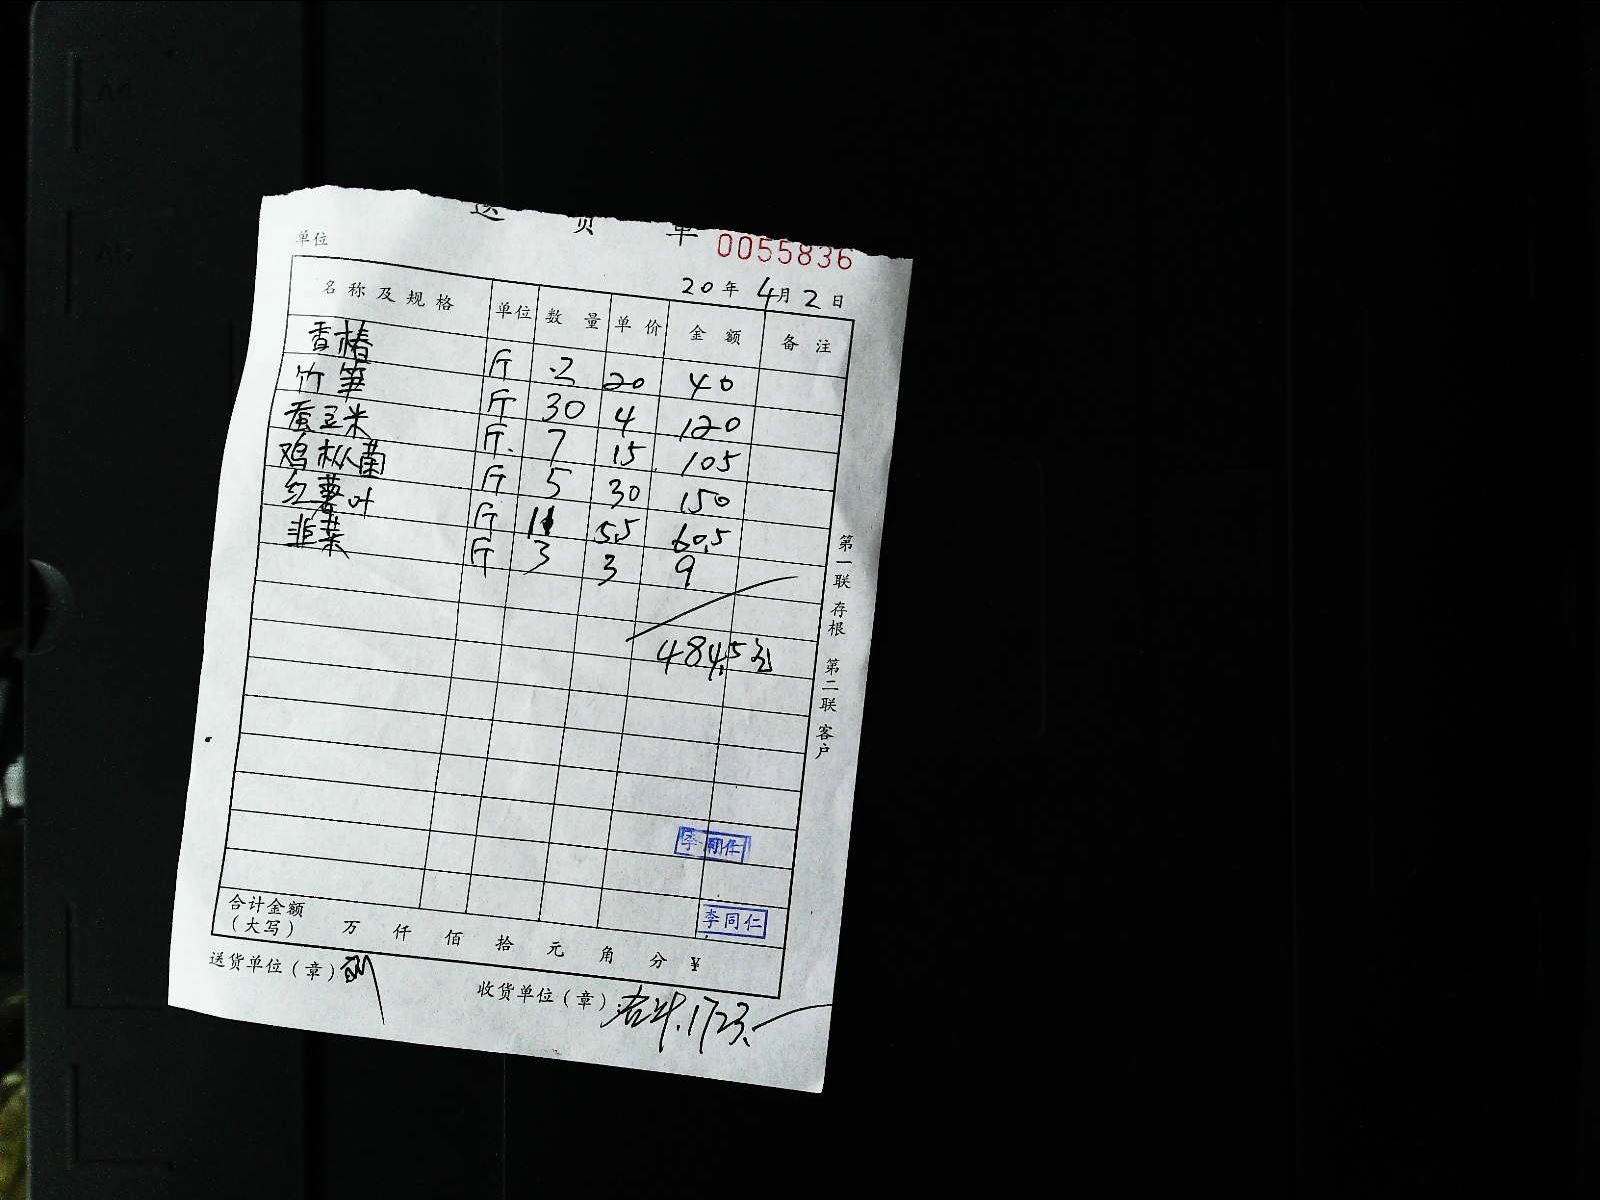 送 货 单
0055836
单位
20 年 4 月 2 日
名称及规格 单位 数量 单价 金额 备注
香椿 斤 2 20 40
竹笋 斤 30 4 120
蚕豆米 斤 7 15 105
鸡枞菌 斤 5 30 150
红薯叶 斤 11 5.5 60.5
韭菜 斤 3 3 9
484.5元
第一联 存根 第二联 客户
李同仁
李同仁
合计金额（大写） 万 仟 佰 拾 元 角 分 ¥
送货单位（章）
收货单位（章） 1723